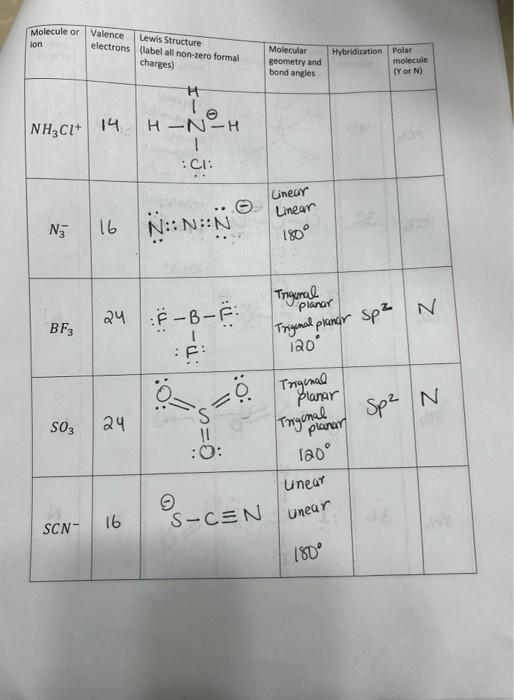 Molecule or ion Valence electrons Lewis Structure (label all non-zero formal charges) Molecular geometry and bond angles Hybridization Polar molecule (Y or N)
NH3Cl+ 14
H
H – N ⊖ – H
:Cl:
N3- 16 N::N::N ⊖
Linear
Linear
180°
BF3 24 :F – B – F:
:F:
Trigonal planar
Trigonal planar
120°
sp2 N
SO3 24
O O
S
:O:
Trigonal planar
Trigonal planar
120°
sp2 N
SCN- 16
⊖
S–C≡N
Linear
Linear
180°